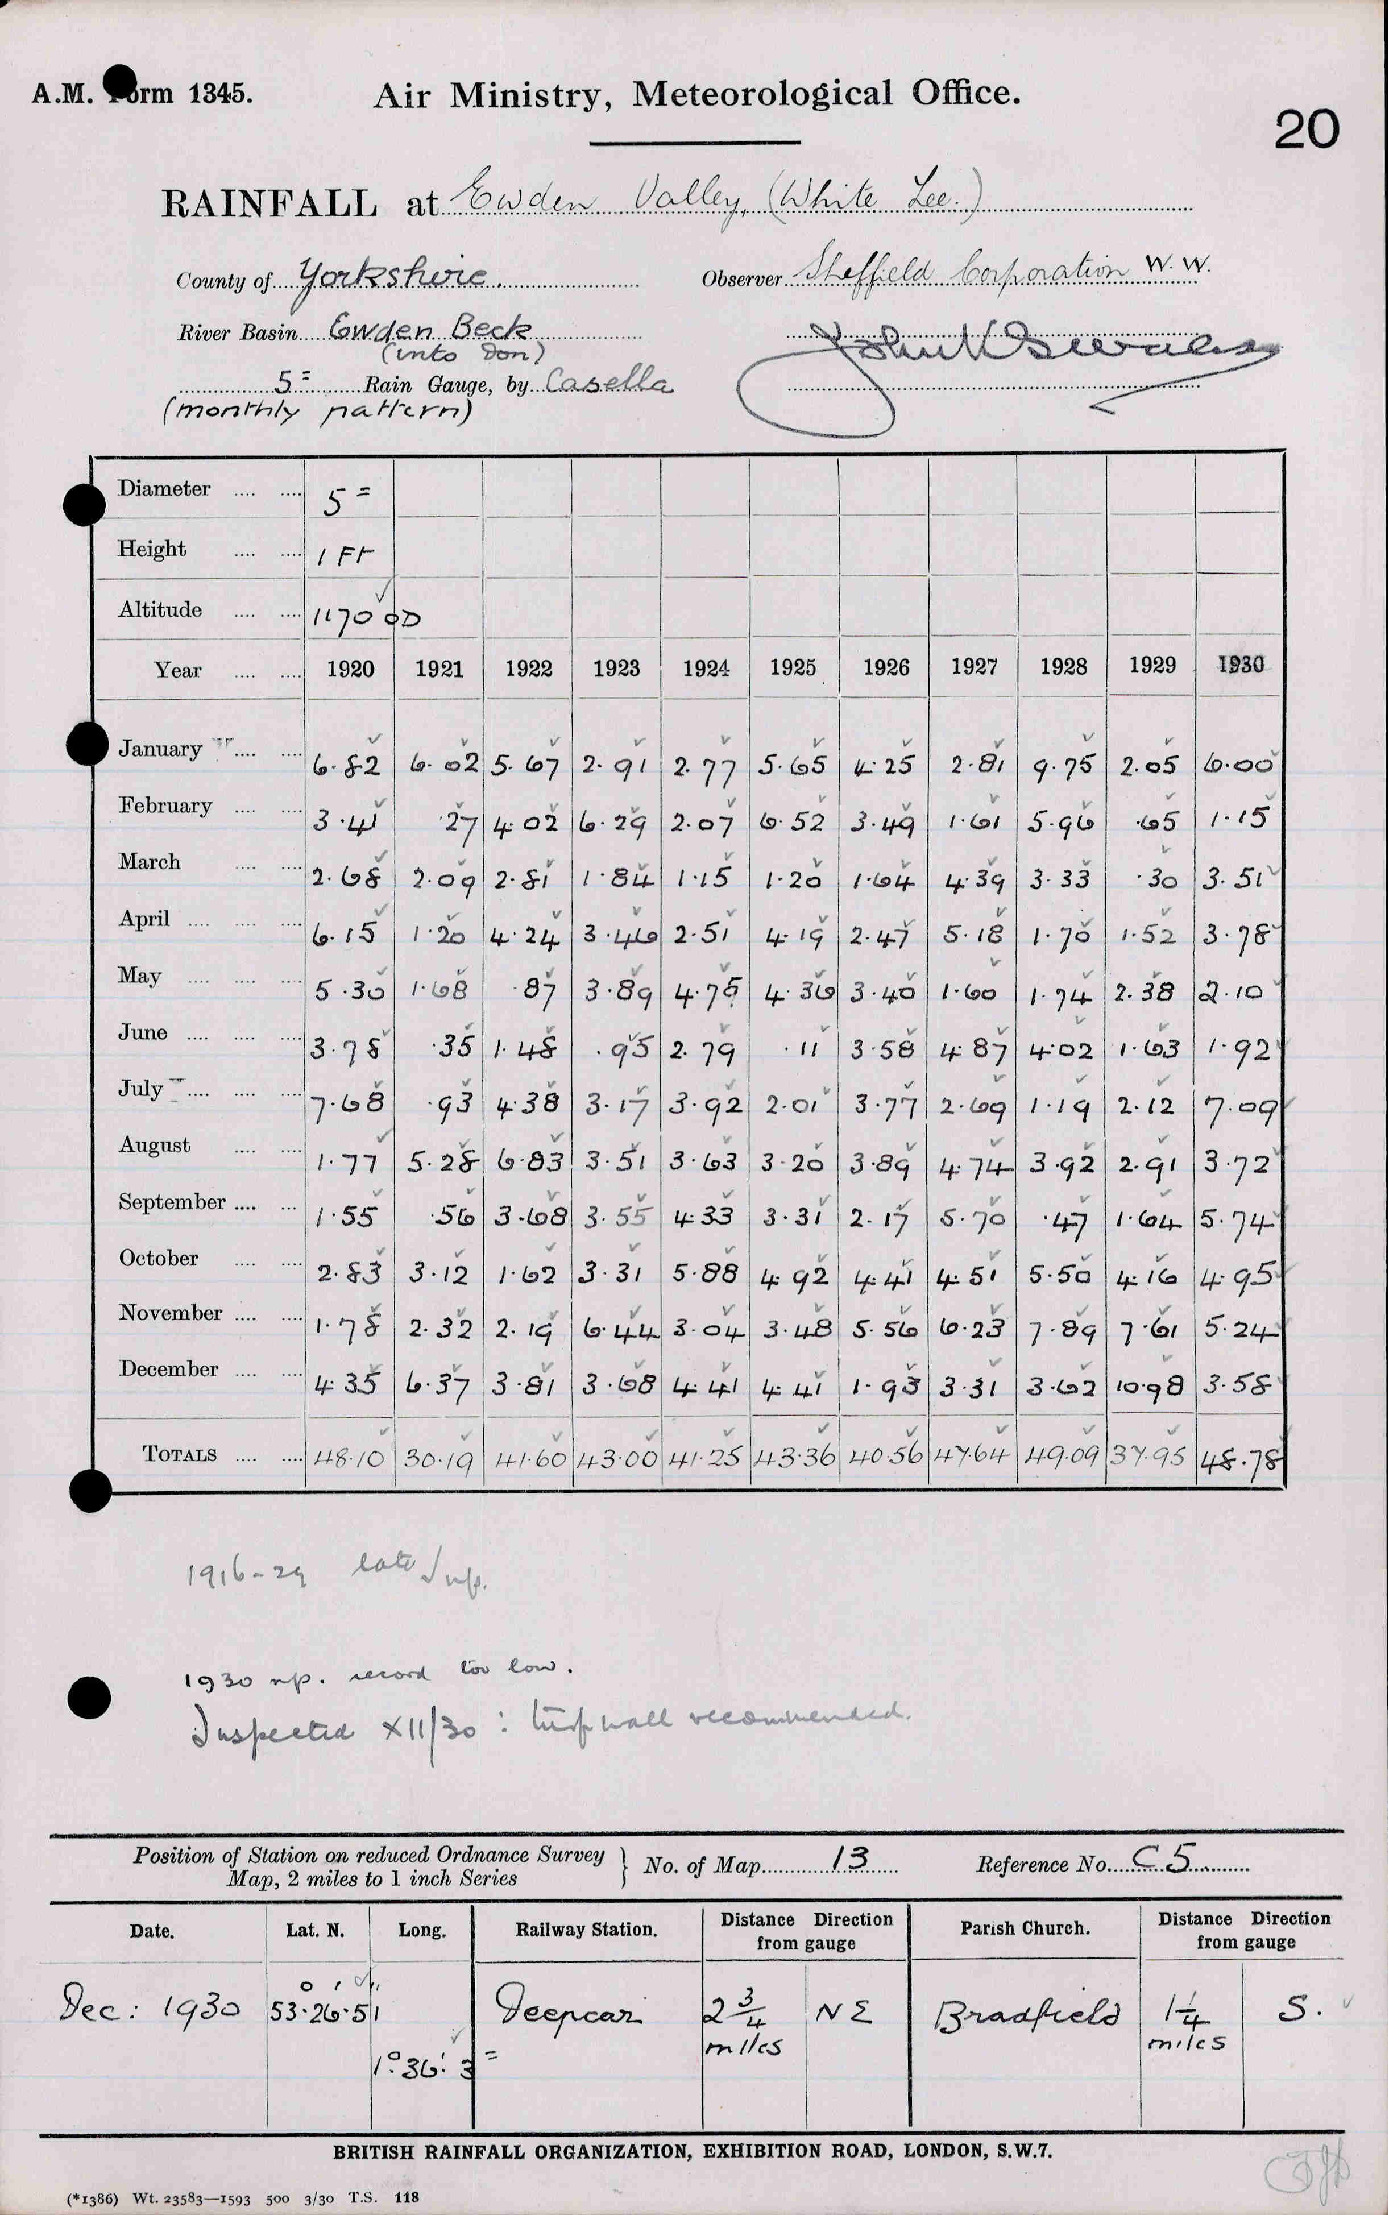 A.M. Form 1345.
Air Ministry, Meteorological Office.
20
RAINFALL at Ewden Valley, (White Lee.)
County of Yorkshire. Observer Sheffield Corporation W.W.
River Basin Ewden Beck
(into Don)
5" Rain Gauge, by Casella
(monthly pattern)
Diameter 5"
Height 1 Ft
Altitude 1170 OD
Year 1920 1921 1922 1923 1924 1925 1926 1927 1928 1929 1930
January 6.82 6.02 5.67 2.91 2.77 5.65 4.25 2.81 9.75 2.05 6.00
February 3.41 .27 4.02 6.29 2.07 6.52 3.49 1.61 5.96 .65 1.15
March 2.68 2.09 2.81 1.84 1.15 1.20 1.64 4.39 3.33 .30 3.51
April 6.15 1.20 4.24 3.46 2.51 4.19 2.47 5.18 1.70 1.52 3.78
May 5.30 1.68 .87 3.89 4.75 4.36 3.40 1.60 1.74 2.38 2.10
June 3.78 .35 1.48 .95 2.79 .11 3.58 4.87 4.02 1.63 1.92
July 7.68 .93 4.38 3.17 3.92 2.01 3.77 2.69 1.19 2.12 7.09
August 1.77 5.28 6.83 3.51 3.63 3.20 3.89 4.74 3.92 2.91 3.72
September 1.55 .56 3.68 3.55 4.33 3.31 2.17 5.70 .47 1.64 5.74
October 2.83 3.12 1.62 3.31 5.88 4.92 4.41 4.51 5.50 4.16 4.95
November 1.78 2.32 2.19 6.44 3.04 3.48 5.56 6.23 7.89 7.61 5.24
December 4.35 6.37 3.81 3.68 4.41 4.41 1.93 3.31 3.62 10.98 3.58
TOTALS 48.10 30.19 41.60 43.00 41.25 43.36 40.56 47.64 49.09 37.95 48.78
1916-29 late
1930 record too low.
Inspected XII/30 : turf wall recommended.
Position of Station on reduced Ordnance Survey Map, 2 miles to 1 inch Series } No. of Map 13 Reference No. C5
Date. Lat. N. Long. Railway Station. Distance Direction from gauge Parish Church. Distance Direction from gauge
Dec: 1930 53° 26' 51" 1° 36' 3" Deepcar 2 3/4 miles NE Bradfield 1 1/4 miles S.
BRITISH RAINFALL ORGANIZATION, EXHIBITION ROAD, LONDON, S.W.7.
(*1386) Wt. 23583—1593 500 3/30 T.S. 118